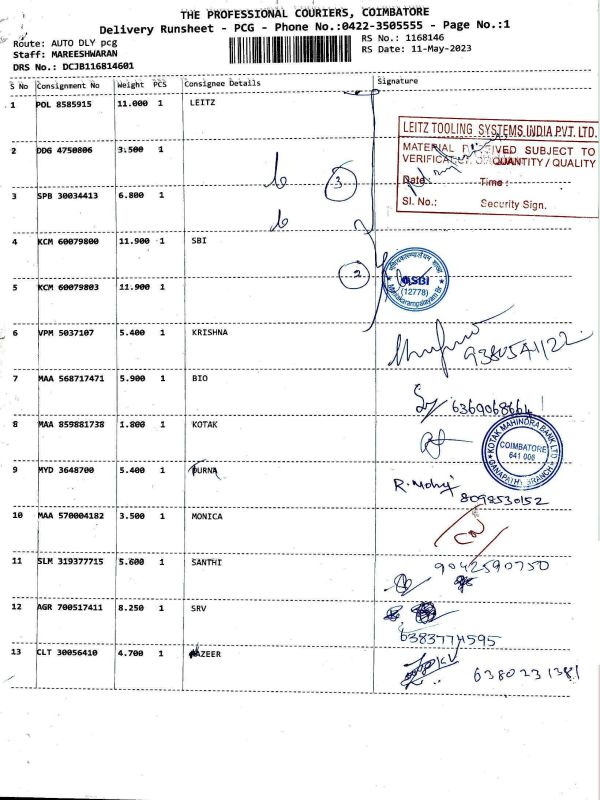 THE PROFESSIONAL COURIERS, COIMBATORE
Delivery Runsheet - PCG - Phone No.:0422-3505555 - Page No.:1
Route: AUTO DLY pcg
RS No.: 1168146
Staff: MAREESHWARAN
RS Date: 11-May-2023
DRS No.: DCJB116814601
S No Consignment No Weight PCS Consignee Details Signature
1 POL 8585915 11.000 1 LEITZ
LEITZ TOOLING SYSTEMS INDIA PVT. LTD.
MATERIAL RECEIVED SUBJECT TO
VERIFICATION QUANTITY / QUALITY
Date: Time:
Sl. No.: Security Sign.
2 DDG 4750806 3.500 1
3
3 SPB 30034413 6.800 1
4 KCM 60079800 11.900 1 SBI
2
SBI
(12778)
5 KCM 60079803 11.900 1
6 VPM 5037107 5.400 1 KRISHNA
9380541122
7 MAA 568717471 5.900 1 BIO
6369068664
8 MAA 859881738 1.800 1 KOTAK
KOTAK MAHINDRA BANK LTD
COIMBATORE
641 006
GANAPATHY BRANCH
9 MYD 3648700 5.400 1 PURNA
R. Mohan
8098530152
10 MAA 570004182 3.500 1 MONICA
11 SLM 319377715 5.600 1 SANTHI
9042590750
12 AGR 700517411 8.250 1 SRV
6383774595
13 CLT 30056410 4.700 1 NAZEER
6380231381